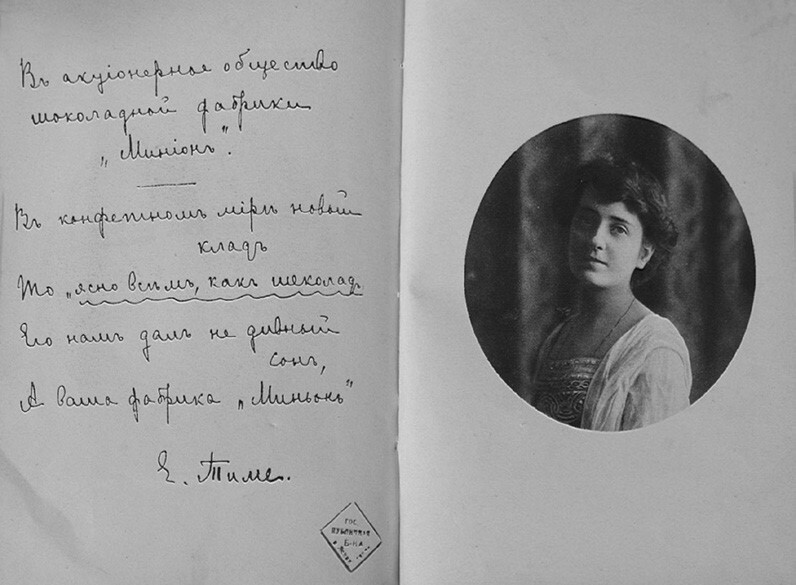 Въ акціонерное общество
шоколадной фабрики
„Миніонъ".
Въ конфетномъ мірѣ новый
кладъ
То „ясно всѣмъ, какъ шоколадъ
Его намъ далъ не дивный
сонъ,
А ваша фабрика „Миньонъ"
Е. Тиме.
ГОС.
ПУБЛИЧНАЯ
Б-КА